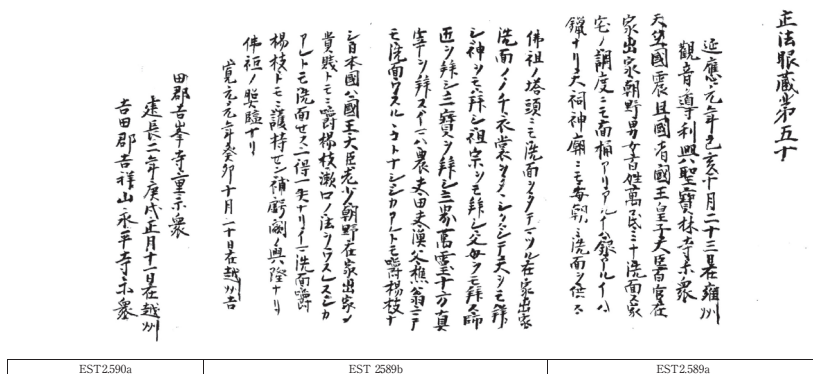 正法眼蔵第五十
延應元年己亥十月二十三日在雍州
觀音導利興聖寶林寺示衆
天竺國震旦國者國王皇子大臣百官在
家出家朝野男女百姓萬民ミナ洗面ス家
宅ノ調度ニモ面桶アリアルイハ銀アルイハ
鑞ナリ天祠神廟ニモ毎朝ニ洗面ヲ供ス
佛祖ノ塔頭ニモ洗面ヲタテマツル在家出家
洗面ノノチ衣裳ヲタヽシクシテ天ヲモ拜
シ神ヲモ拜シ祖宗ヲモ拜シ父母ヲモ拜ス師
匠ヲ拜シ三寶ヲ拜シ三界萬靈十方真
宰ヲ拜スイマハ農夫田夫漁父樵翁ニテ
モ洗面ワスルヽコトナシシカアレトモ嚼楊枝ナ
シ日本國ハ國王大臣老少朝野在家出家ノ
貴賤トモニ嚼楊枝漱口ノ法ヲワスレスシカ
アレトモ洗面セス一得一失ナリイマ洗面嚼
楊枝トモニ護持セン補虧闕ノ興隆ナリ
佛祖ノ照臨ナリ
寛元元年癸卯十月二十日在越州吉
田郡吉峯寺重示衆
建長二年庚戌正月十一日在越州
吉田郡吉祥山永平寺示衆
EST2.590a EST 2589b EST2.589a